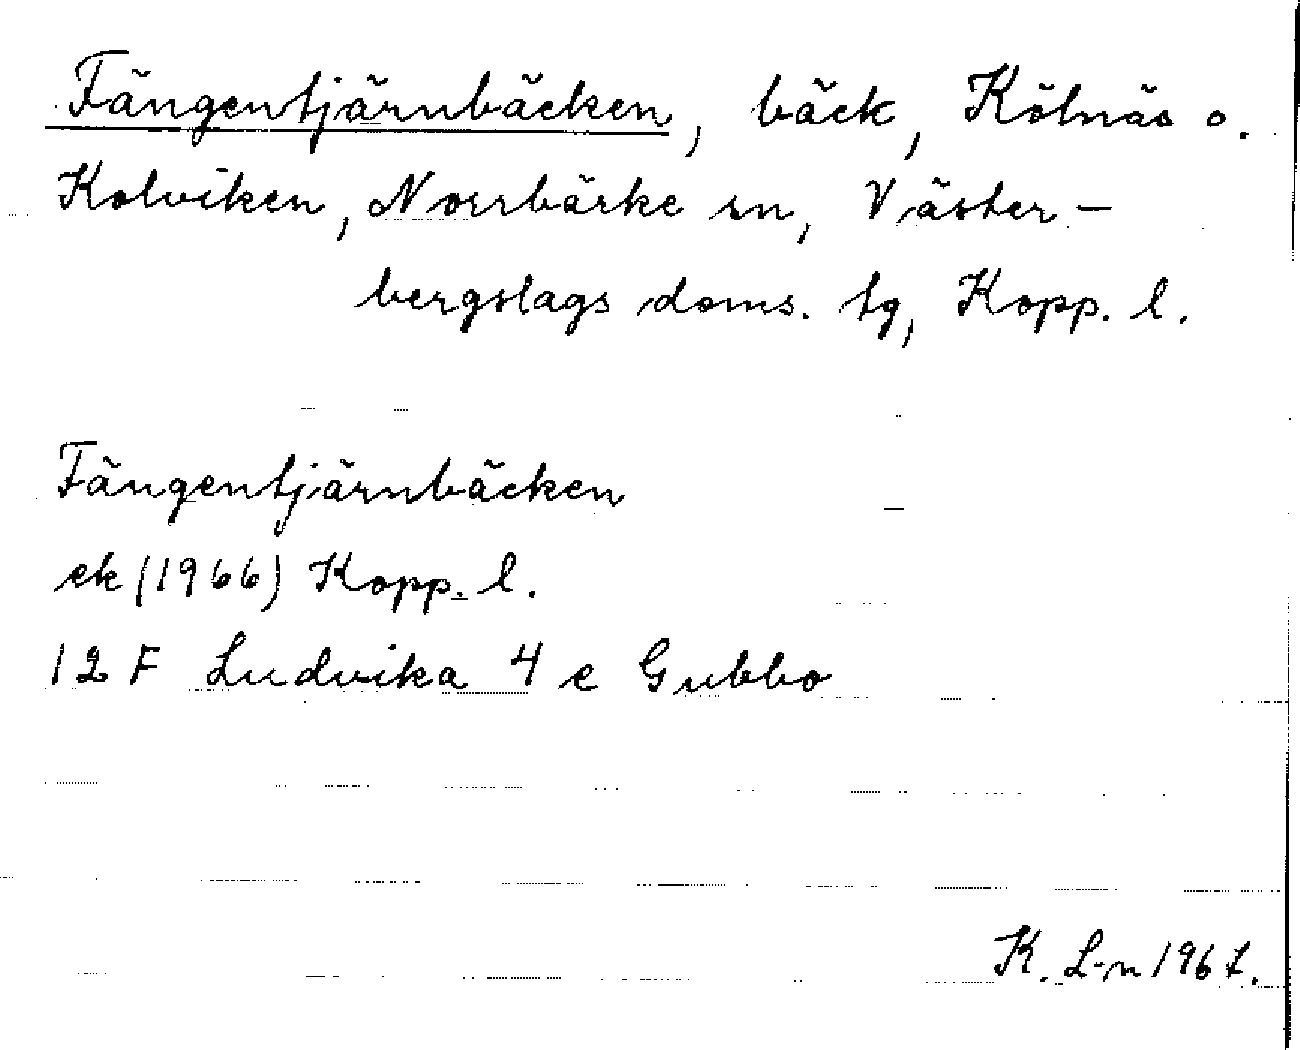 Fängentjärnbäcken, bäck, Kölnäs o.
Kolviken, Norrbärke sn, Väster-
bergslags doms. tg, Kopp. l.
Fängentjärnbäcken
ek (1966) Kopp. l.
12 F Ludvika 4 e Gubbo
K. L-n 1967.